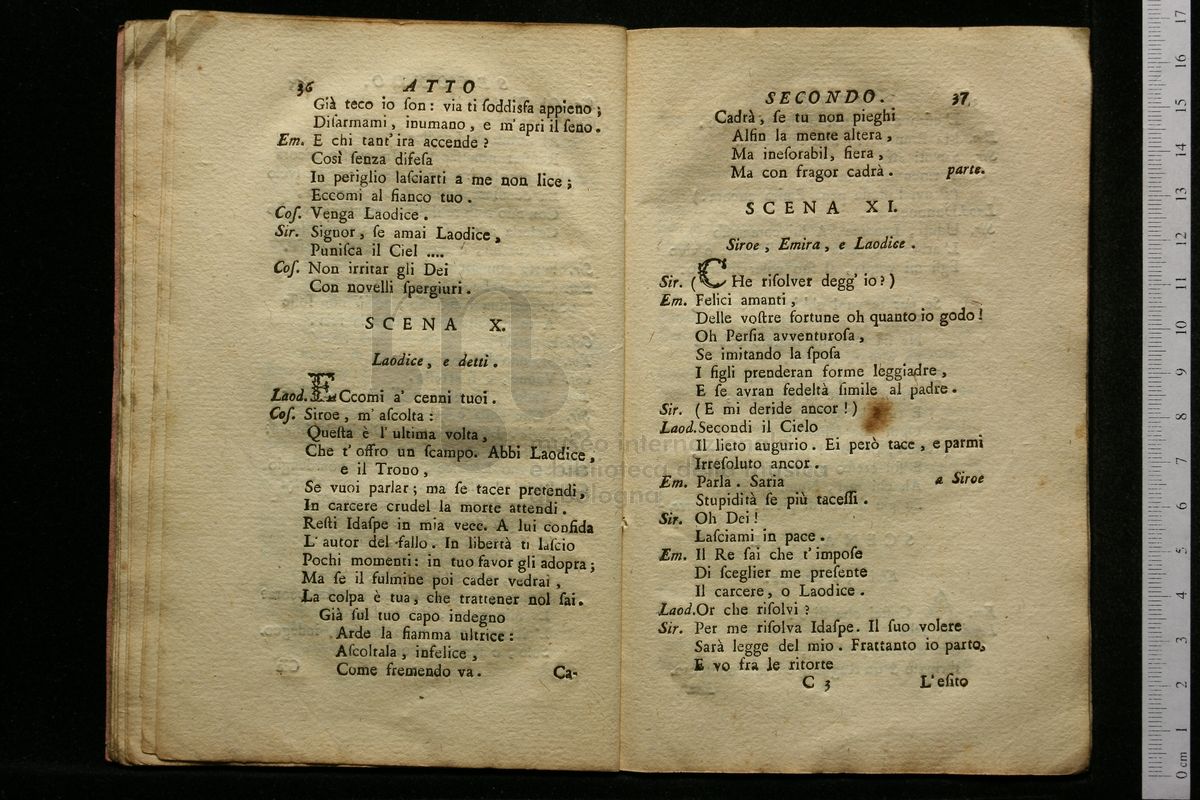 36 ATTO
Già teco io ſon: via ti ſoddisfa appieno;
Diſarmami, inumano, e m'apri il ſeno.
Em. E chi tant'ira accende?
Così ſenza difeſa
In periglio laſciarti a me non lice;
Eccomi al fianco tuo.
Coſ. Venga Laodice.
Sir. Signor, ſe amai Laodice,
Puniſca il Ciel ....
Coſ. Non irritar gli Dei
Con novelli ſpergiuri.
SCENA X.
Laodice, e detti.
Laod. ECcomi a' cenni tuoi.
Coſ. Siroe, m'aſcolta:
Queſta è l'ultima volta,
Che t'offro un ſcampo. Abbi Laodice,
e il Trono,
Se vuoi parlar; ma ſe tacer pretendi,
In carcere crudel la morte attendi.
Reſti Idaſpe in mia vece. A lui confida
L'autor del fallo. In libertà ti laſcio
Pochi momenti: in tuo favor gli adopra;
Ma ſe il fulmine poi cader vedrai,
La colpa è tua, che trattener nol ſai.
Già ſul tuo capo indegno
Arde la fiamma ultrice:
Aſcoltala, infelice,
Come fremendo va.
Ca-
SECONDO. 37
Cadrà, ſe tu non pieghi
Alfin la mente altera,
Ma ineſorabil, fiera,
Ma con fragor cadrà. parte.
SCENA XI.
Siroe, Emira, e Laodice.
Sir. (CHe riſolver degg'io?)
Em. Felici amanti,
Delle voſtre fortune oh quanto io godo!
Oh Perſia avventuroſa,
Se imitando la ſpoſa
I figli prenderan forme leggiadre,
E ſe avran fedeltà ſimile al padre.
Sir. (E mi deride ancor!)
Laod. Secondi il Cielo
Il lieto augurio. Ei però tace, e parmi
Irreſoluto ancor.
Em. Parla. Saria a Siroe
Stupidità ſe più taceſſi.
Sir. Oh Dei!
Laſciami in pace.
Em. Il Re ſai che t'impoſe
Di ſceglier me preſente
Il carcere, o Laodice.
Laod. Or che riſolvi?
Sir. Per me riſolva Idaſpe. Il ſuo volere
Sarà legge del mio. Frattanto io parto,
E vo fra le ritorte
C 3 L'eſito
museo internazionale
e biblioteca della musica
di bologna
0 cm 1 2 3 4 5 6 7 8 9 10 11 12 13 14 15 16 17